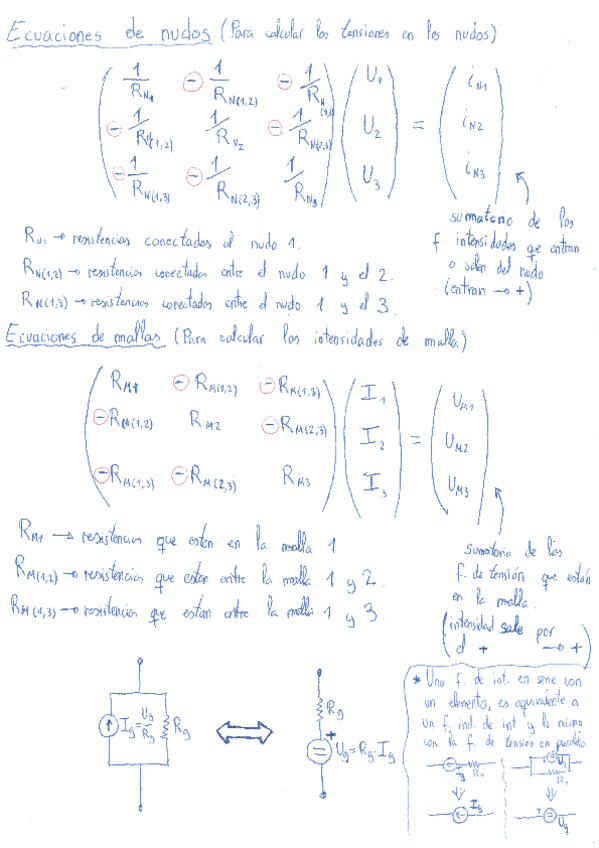 Ecuaciones de nudos (Para calcular las tensiones en los nudos)
1/R_N1 - 1/R_N(1,2) - 1/R_N(1,3) U_1 i_N1
- 1/R_N(1,2) 1/R_N2 - 1/R_N(2,3) U_2 = i_N2
- 1/R_N(1,3) - 1/R_N(2,3) 1/R_N3 U_3 i_N3
sumatorio de las
f. intensidades que entran
o salen del nudo
(entran → +)
R_N1 → resistencias conectadas al nudo 1.
R_N(1,2) → resistencias conectadas entre el nudo 1 y el 2.
R_N(1,3) → resistencias conectadas entre el nudo 1 y el 3.
Ecuaciones de mallas (Para calcular las intensidades de malla)
R_M1 - R_M(1,2) - R_M(1,3) I_1 U_M1
- R_M(1,2) R_M2 - R_M(2,3) I_2 = U_M2
- R_M(1,3) - R_M(2,3) R_M3 I_3 U_M3
R_M1 → resistencias que esten en la malla 1
R_M(1,2) → resistencias que estan entre la malla 1 y 2.
R_M(1,3) → resistencias que estan entre la malla 1 y 3
sumatorio de las
f. de tensión que están
en la malla.
(intensidad sale por
el + → +)
I_g = U_g/R_g R_g
R_g
+
U_g = R_g · I_g
* Una f. de int. en serie con
un elemento, es equivalente a
un f. ind. de int y lo mismo
con la f. de tension en paralelo
I_g
+ U_g